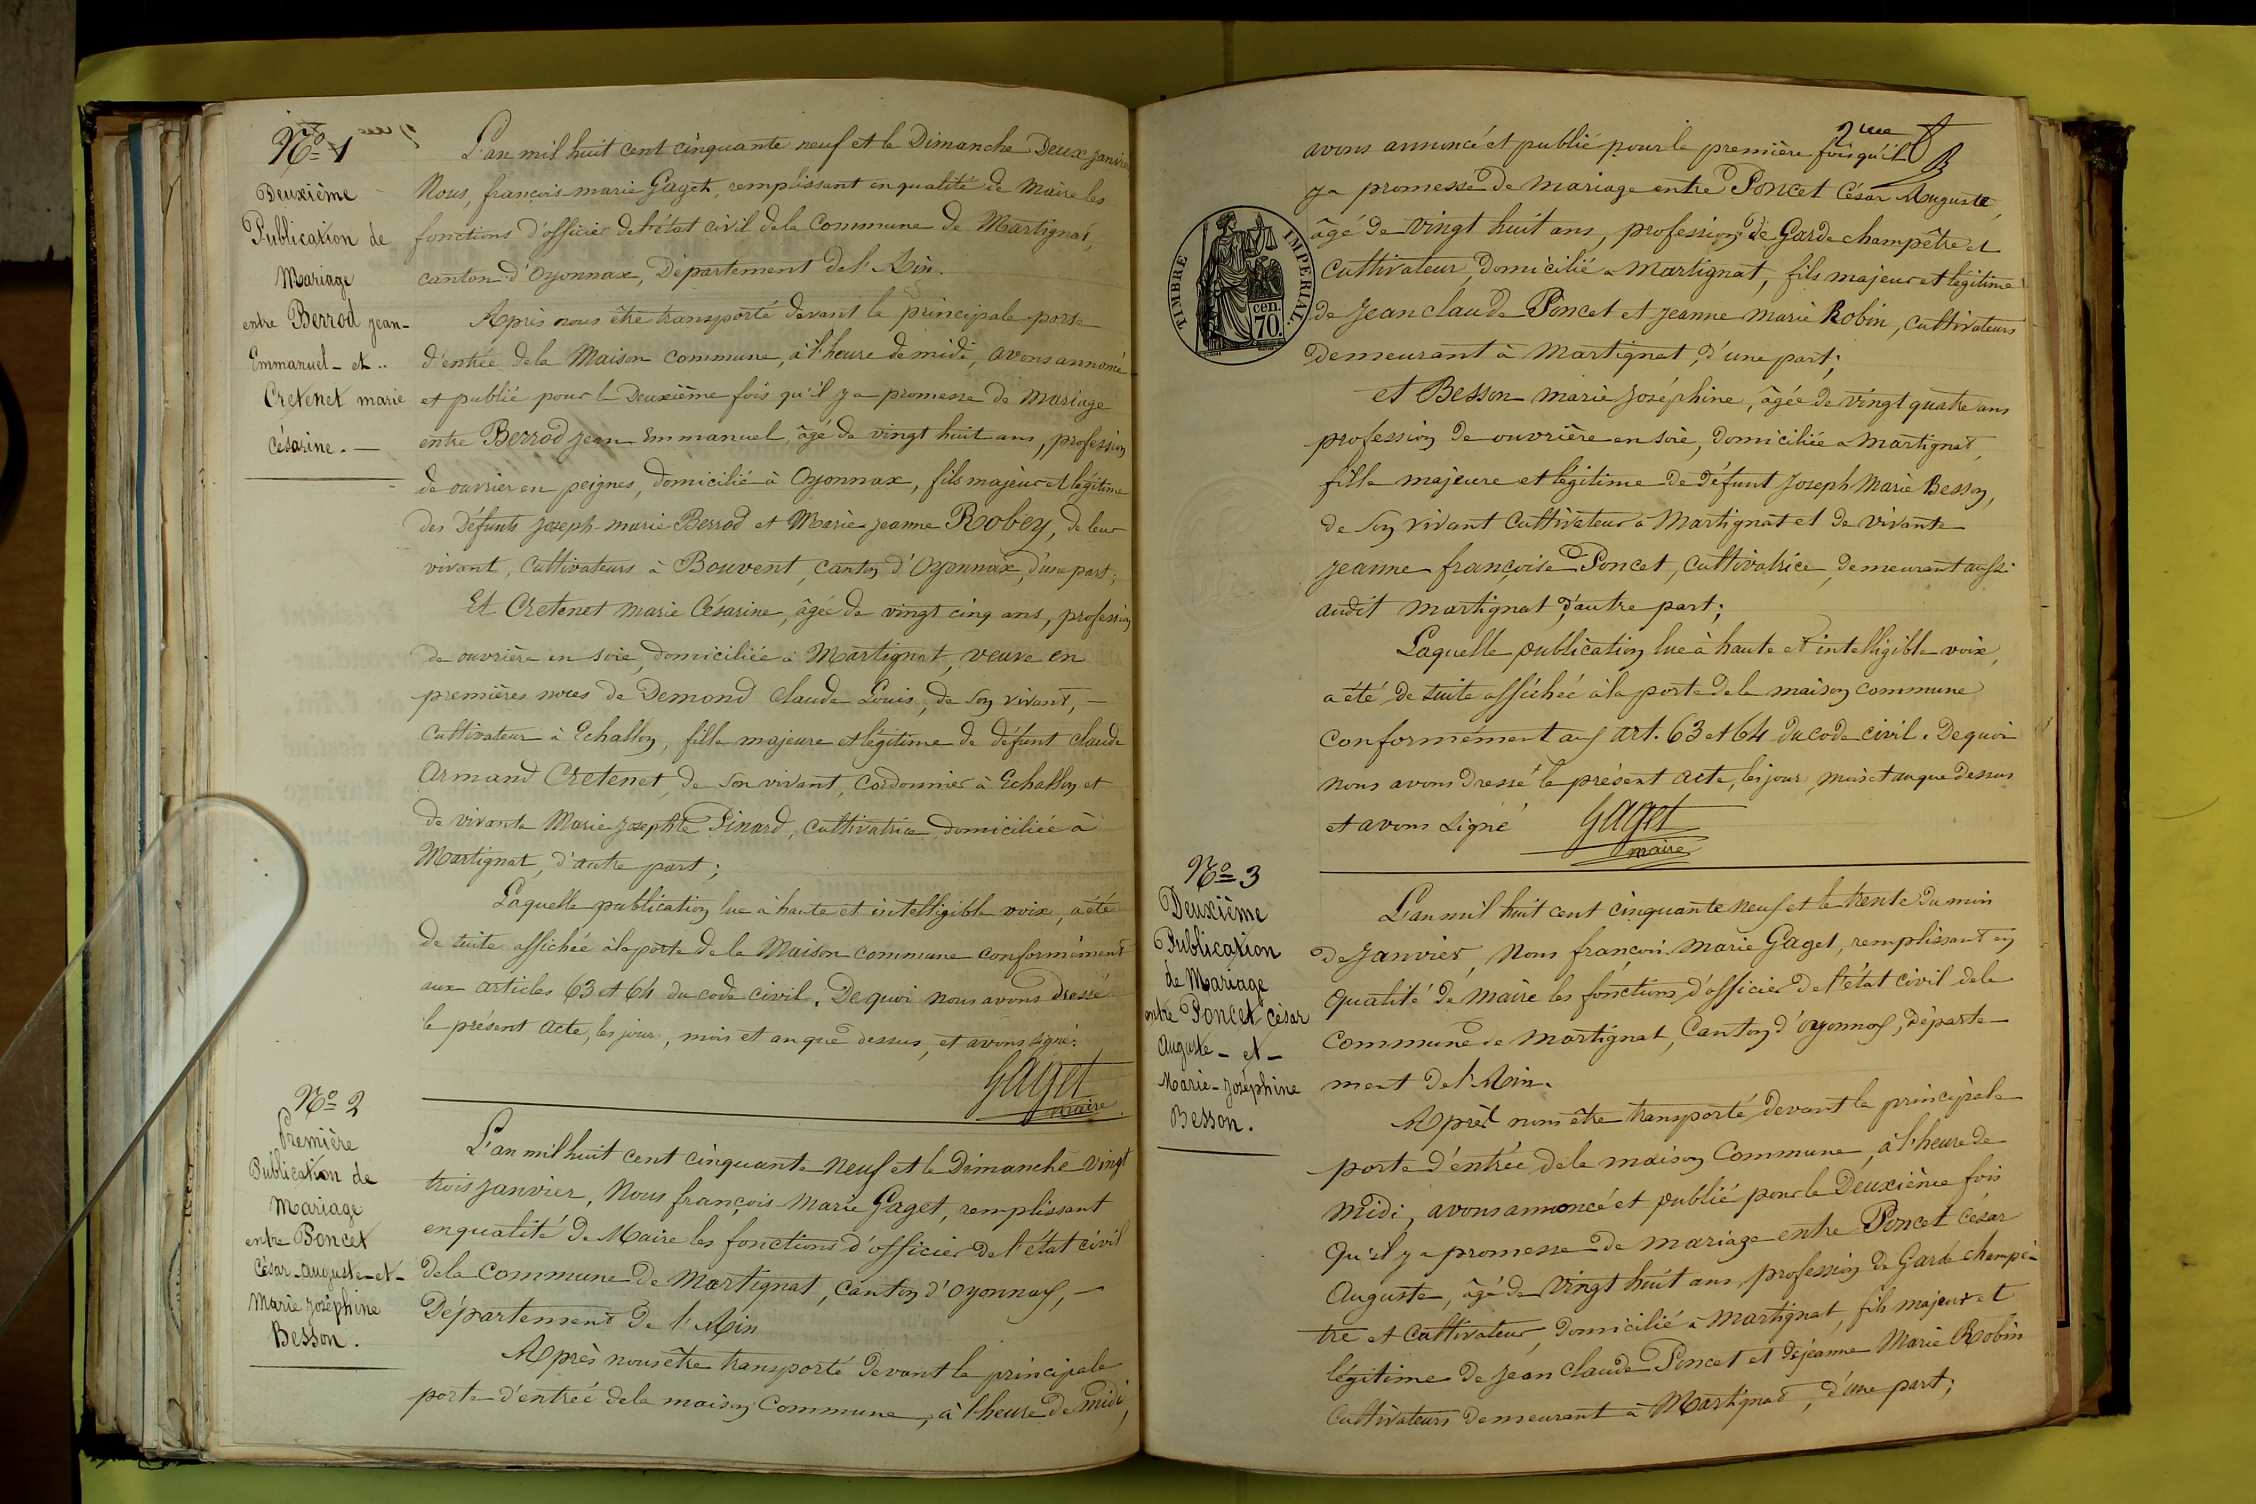 Nº 1
Deuxième
Publication de
Mariage
entre Berrod jean-
Emmanuel - et ..
Cretenet marie
Césarine. —
L'an mil huit cent cinquante neuf et le Dimanche Deux janvier
Nous, francois-marie Gaget, remplissant en qualité de Maire les
fonctions d'officier de l'état civil dela Commune de Martignat,
canton d'Oyonnax, Département de l'Ain.
Après nous être transporté devant la principale porte
d'entrée dela Maison commune, à l'heure de midi, avons annoncé
et publié pour la Deuxième fois qu'il y a promesse de Mariage
entre Berrod jean Emmanuel, âgé de vingt huit ans, profession
de ouvrier en peignes, domicilié à Oyonnax, fils majeur et légitime
des Défunts joseph-marie Berrod et Marie-jeanne Robey, de leur
vivant, Cultivateurs à Bouvent, canton d'Oyonnax, d'une part;
Et Cretenet marie Césarine, âgée de vingt cinq ans, profession
de ouvrière en soie, domiciliée à Martignat, veuve en
premières noces de Demond Claude Louis, de son vivant, —
Cultivateur à Echallon, fille majeure et légitime de défunt claude
Armand Cretenet, de son vivant, Cordonnier à Echallon et
de vivante Marie josephte Pinard, Cultivatrice domiciliée à
Martignat, d'autre part;
Laquelle publication lue à haute et intelligible voix, a été
de suite affichée à la porte de la Maison commune conformément
aux articles 63 et 64 du code civil. De quoi nous avons dressé
le présent acte, les jour, mois et an que dessus, et avons signé.
Gaget
maire
Nº 2
Première
Publication de
Mariage
entre Poncet
César-Auguste-et-
Marie joséphine
Besson.
L'an mil huit cent cinquante neuf et le Dimanche vingt
trois janvier, Nous françois-Marie Gaget, remplissant
en qualité de Maire les fonctions d'officier de l'état civil
dela Commune de Martignat, canton d'Oyonnax, —
Département de l'Ain
Après nous être transporté devant la principale
porte d'entrée dela maison Commune, à l'heure de midi,
2me
avons annoncé et publié pour la première fois qu'il
y a promesse de mariage entre Poncet César Auguste,
âgé de vingt huit ans, profession de Garde champêtre et
Cultivateur, domicilié a Martignat, fils majeur et légitime
de Jean claude Poncet et jeanne marie Robin, cultivateurs
Demeurant à Martignat, d'une part;
et Besson marie joséphine, âgée de vingt quatre ans
profession de ouvrière en soie, domiciliée a Martignat,
fille majeure et légitime de défunt joseph Marie Besson,
de son vivant Cultivateur à Martignat et de vivante
jeanne françoise Poncet, Cultivatrice, demeurant aussi
audit Martignat, d'autre part;
Laquelle publication lue à haute et intelligible voix,
a été de suite affichée à la porte de la maison commune
Conformément aux art. 63 et 64 du code civil. De quoi
nous avons dressé le présent acte, les jour, mois et an que dessus
et avons signé
Gaget
maire
TIMBRE IMPERIAL.
cen.
70.
Nº 3
Deuxième
Publication
de Mariage
entre Poncet César
Auguste - et -
Marie-joséphine
Besson.
L'an mil huit cent cinquante neuf et le trente du mois
De janvier, Nous françois Marie Gaget, remplissant en
qualité de maire les fonctions d'officier de l'état civil dela
Commune de Martignat, Canton d'oyonnax, Départe-
ment de l'Ain.
Après nous être transporté, devant la principale
porte d'entrée dela maison Commune, à l'heure de
midi, avons annoncé et publié pour la Deuxième fois
qu'il y a promesse de mariage entre Poncet César
Auguste, âgé de vingt huit ans, profession de Garde champê-
tre et Cultivateur, domicilié à Martignat, fils majeur et
légitime de jean claude Poncet et de jeanne Marie Robin
Cultivateurs demeurant à Martignat, d'une part;